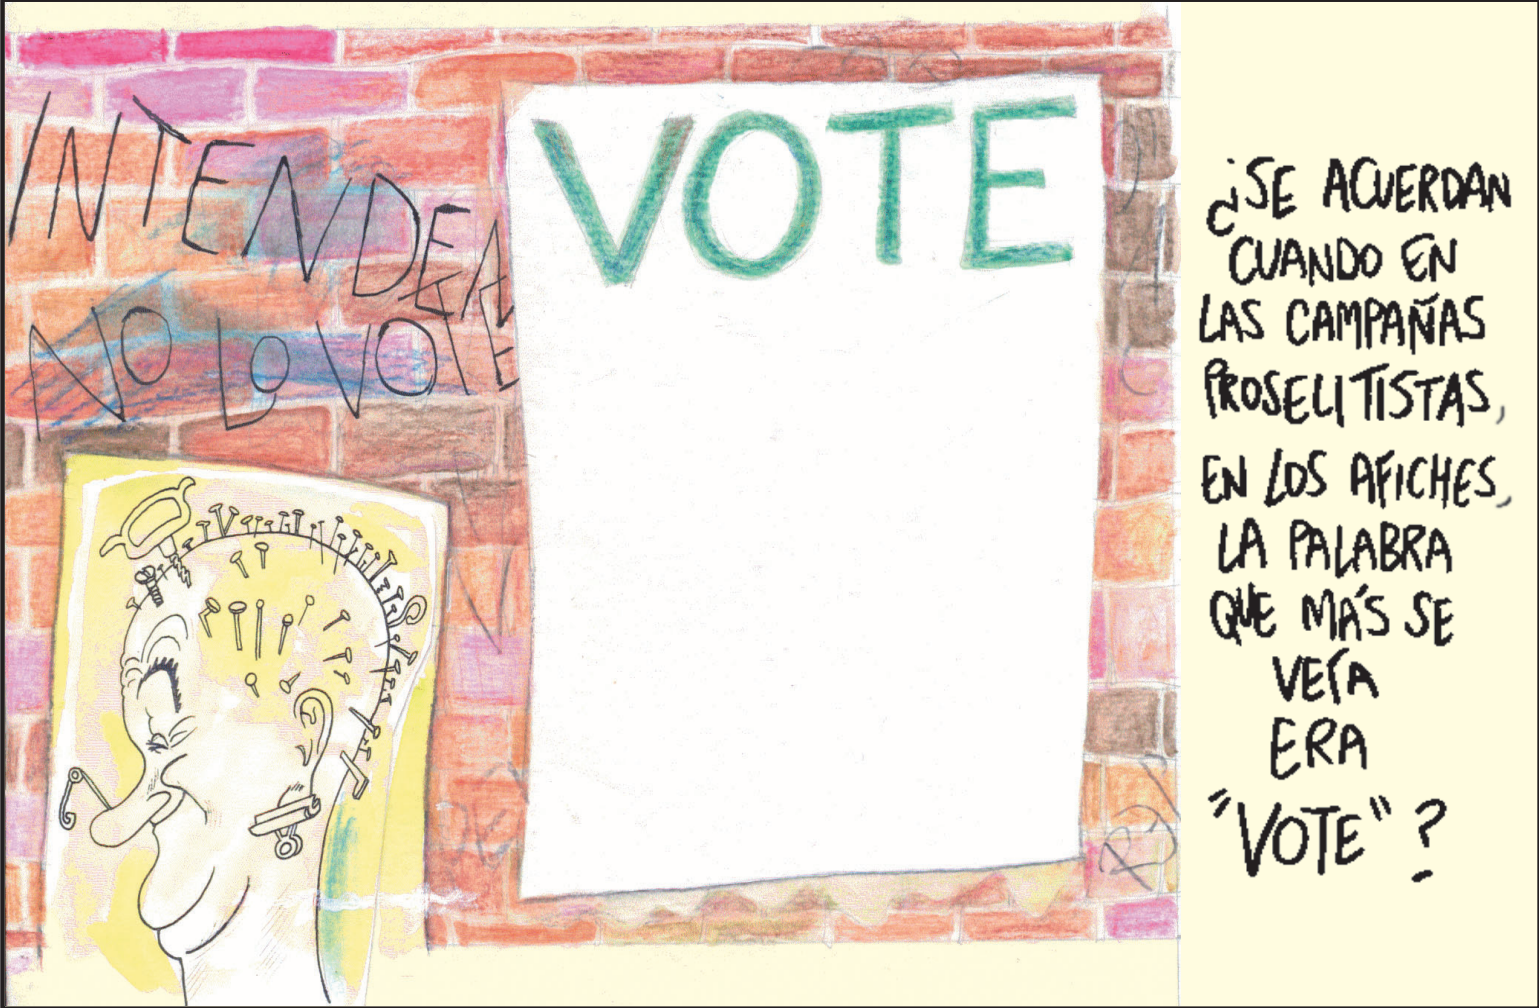 INTENDEN
NO LO VOTE
VOTE
¿SE ACUERDAN
CUANDO EN
LAS CAMPAÑAS
PROSELITISTAS,
EN LOS AFICHES,
LA PALABRA
QUE MÁS SE
VEÍA
ERA
"VOTE"?